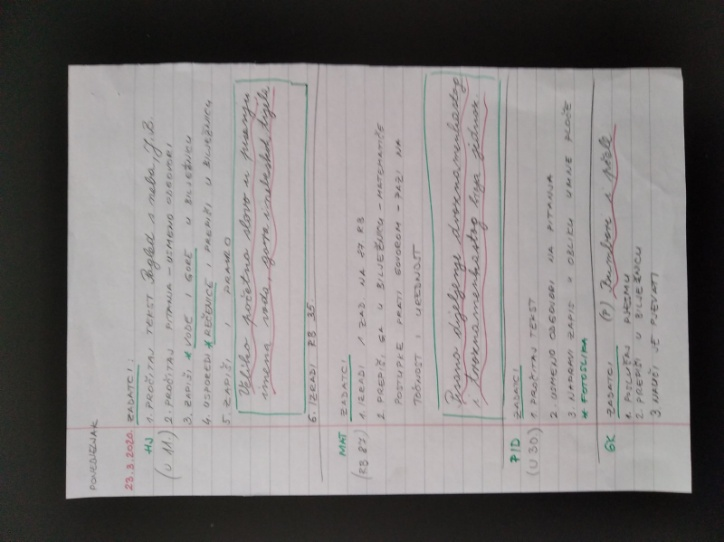 PONEDJELJAK
23.3.2020. ZADATCI:
HJ 1. PROČITAJ TEKST Pogled s neba, J.B.
(U 11.) 2. PROČITAJ PITANJA - USMENO ODGOVORI
3. ZAPIŠI * VODE I GORE U BILJEŽNICU
4. USPOREDI * REČENICE, I PREPIŠI U BILJEŽNICU
5. ZAPIŠI I PRAVILO
Veliko početno slovo u pisanju
imena voda, gora i nebeskih tijela
6. IZRADI RB 35
MAT ZADATCI
(RB 87) 1. IZRADI 1 ZAD NA 87 RB
2. PREPIŠI GA U BILJEŽNICU - MATEMATIČE
POSTUPKE PRATI GOVOROM - PAZI NA
TOČNOST I UREDNOST
Pisano dijeljenje dvoznamenkastog
i troznamenkastog broja jednoz.
PID ZADATCI
(U 30.) 1. PROČITAJ TEKST
2. USMENO ODGOVORI NA PITANJA
3. NAPRAVI ZAPIS U OBLIKU UMNE PLOČE
* FOTOSLIKA
GK ZADATCI (P) Bumbari i pčele
1. POSLUŠAJ PJESMU
2. PREPIŠI U BILJEŽNICU
3. NAUČI JE PJEVATI